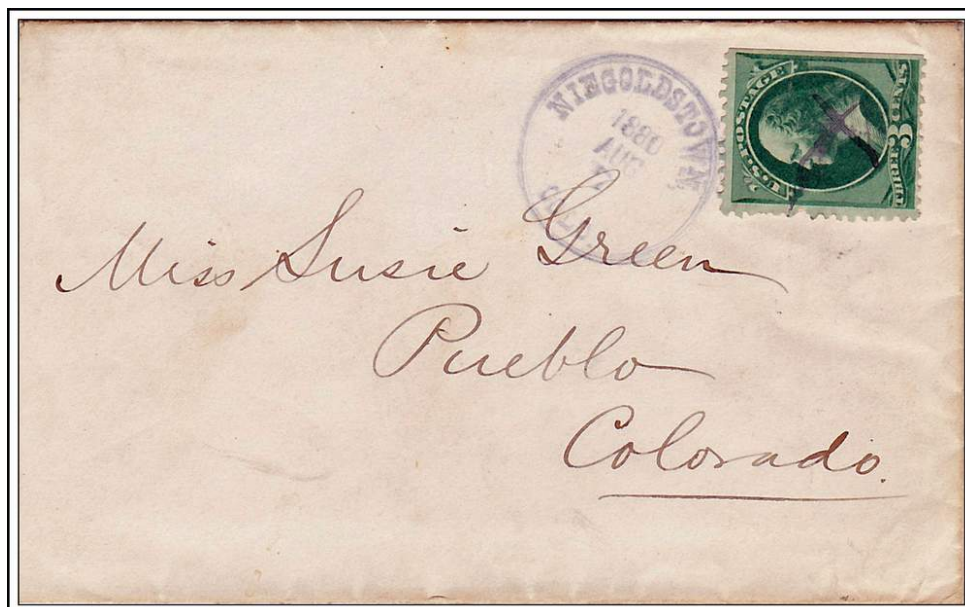 NIEGOLDSTOWN,
1880
AUG
U.S. POSTAGE
THREE 3 CENTS
Miss Susie Green
Pueblo
Colorado.